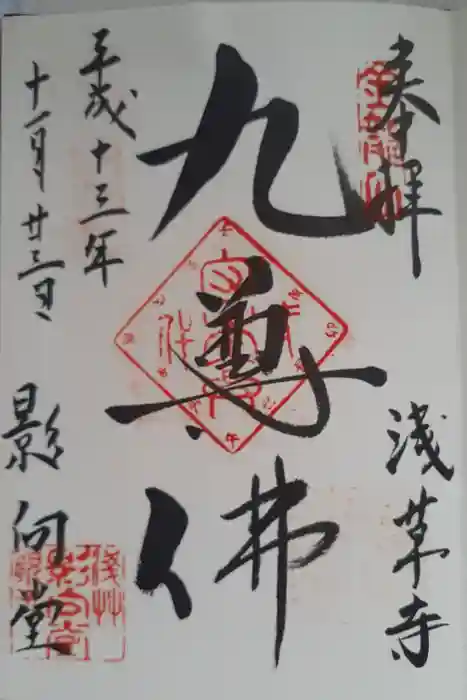 奉拝
浅草寺
九尊佛
平成十三年
十一月廿三日
影向堂